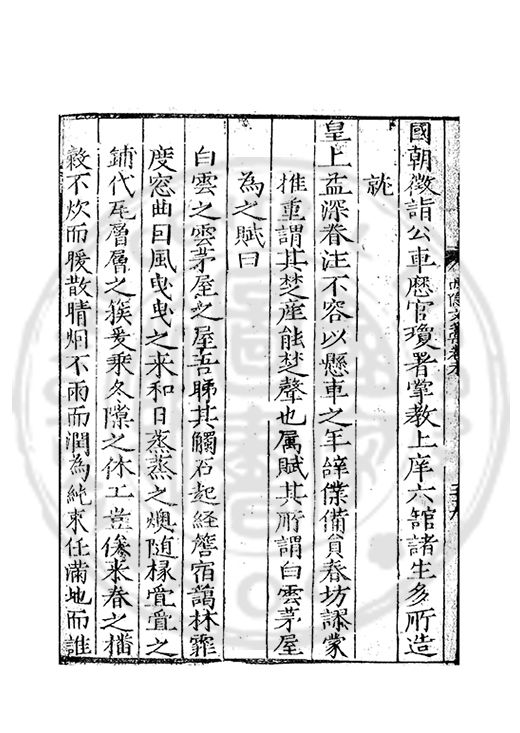 國朝徵詣公車歷官瓊署掌教上庠六館諸生多所造
就
皇上益深眷注不容以懸車之年辭僕備員春坊謬蒙
推重謂其楚産能楚聲也属賦其所謂白雲茅屋
為之賦曰
白雲之雲茅屋之屋吾睇其觸石起經簷宿藹林霏
度窓曲曰風曳曳之来和日蒸蒸之燠随椽㲲㲲之
鋪代瓦層層之簇爰乘冬隙之休工豈俟来春之播
穀不炊而暖散晴烟不雨而潤為純束任滿地而誰